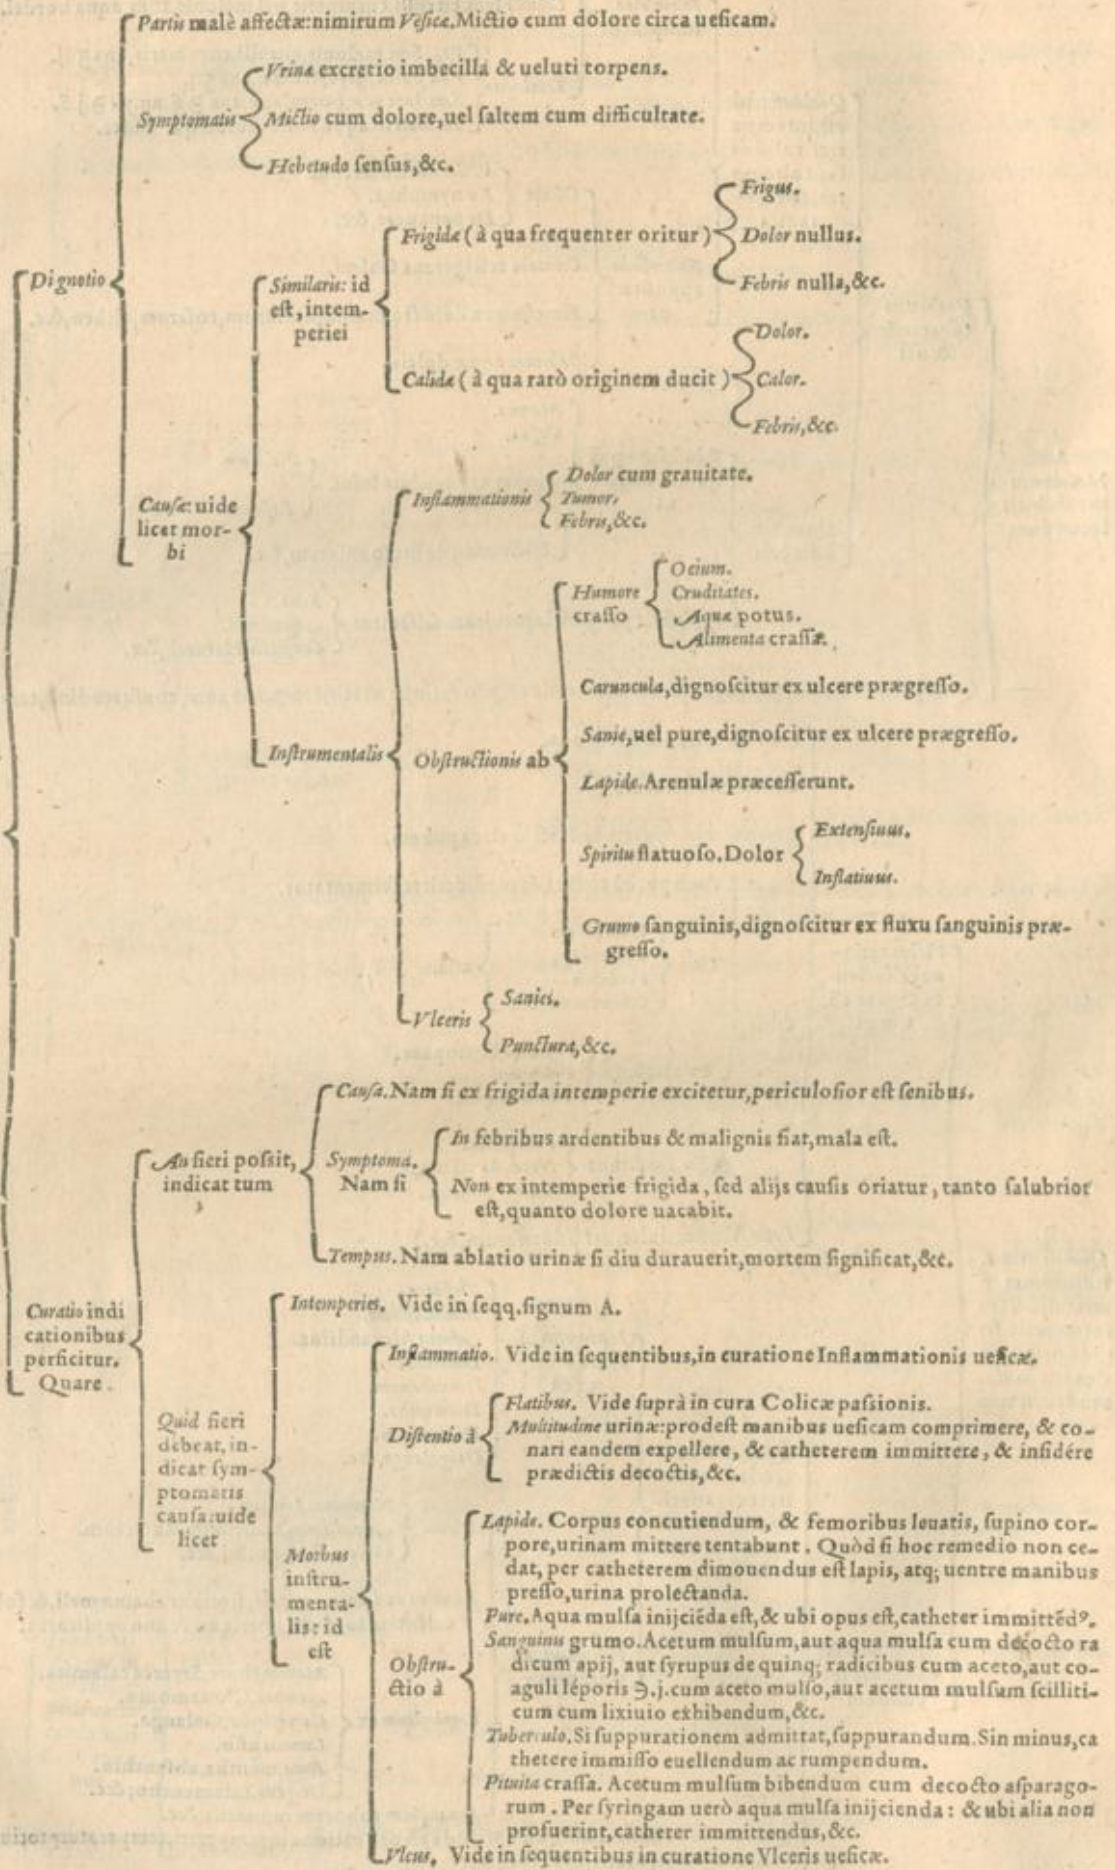 Partis malè affectæ: nimirum Vesicæ. Mictio cum dolore circa uesicam.
Vrinæ excretio imbecilla & ueluti torpens.
Symptomatis
Mictio cum dolore, uel saltem cum difficultate.
Hebetudo sensus, &c.
Dignotio
Similaris: id
est, intem-
periei
Frigidæ (à qua frequenter oritur)
Frigus.
Dolor nullus.
Febris nulla, &c.
Calidæ (à qua rarò originem ducit)
Dolor.
Calor.
Febris, &c.
Causæ: uide
licet mor-
bi
Instrumentalis
Inflammationis
Dolor cum grauitate.
Tumor.
Febris, &c.
Obstructionis ab
Humore
crasso
Ocium.
Cruditates.
Aquæ potus.
Alimenta crassa.
Caruncula, dignoscitur ex ulcere prægresso.
Sanie, uel pure, dignoscitur ex ulcere prægresso.
Lapide. Arenulæ præcesserunt.
Spiritu flatuoso. Dolor
Extensiuus.
Inflatiuus.
Grumo sanguinis, dignoscitur ex fluxu sanguinis præ-
gresso.
Vlceris
Sanies.
Punctura, &c.
Curatio indi
cationibus
perficitur.
Quare.
An fieri possit,
indicat tum
Causa. Nam si ex frigida intemperie excitetur, periculosior est senibus.
Symptoma.
Nam si
In febribus ardentibus & malignis fiat, mala est.
Non ex intemperie frigida, sed alijs causis oriatur, tanto salubrior
est, quanto dolore uacabit.
Tempus. Nam ablatio urinæ si diu durauerit, mortem significat, &c.
Quid fieri
debeat, in-
dicat sym-
ptomatis
causa: uide
licet
Intemperies. Vide in seqq. signum A.
Morbus
instru-
menta-
lis: id
est
Inflammatio. Vide in sequentibus, in curatione Inflammationis uesicæ.
Distentio à
Flatibus. Vide suprà in cura Colicæ passionis.
Multitudine urinæ: prodest manibus uesicam comprimere, & co-
nari eandem expellere, & catheterem immittere, & insidére
prædictis decoctis, &c.
Obstru-
ctio à
Lapide. Corpus concutiendum, & femoribus leuatis, supino cor-
pore, urinam mittere tentabunt. Quòd si hoc remedio non ce-
dat, per catheterem dimouendus est lapis, atq; uentre manibus
presso, urina prolectanda.
Pure. Aqua mulsa inijciēda est, & ubi opus est, catheter immittēdꝰ.
Sanguinis grumo. Acetum mulsum, aut aqua mulsa cum decocto ra
dicum apij, aut syrupus de quinq; radicibus cum aceto, aut co-
aguli léporis ℈.j. cum aceto mulso, aut acetum mulsum scilliti-
cum cum lixiuio exhibendum, &c.
Tuberculo. Si suppurationem admittat, suppurandum. Sin minus, ca
thetere immisso euellendum ac rumpendum.
Pituita crassa. Acetum mulsum bibendum cum decocto asparago-
rum. Per syringam uerò aqua mulsa inijcienda: & ubi alia non
profuerint, catheter immittendus, &c.
Vlcus. Vide in sequentibus in curatione Vlceris uesicæ.